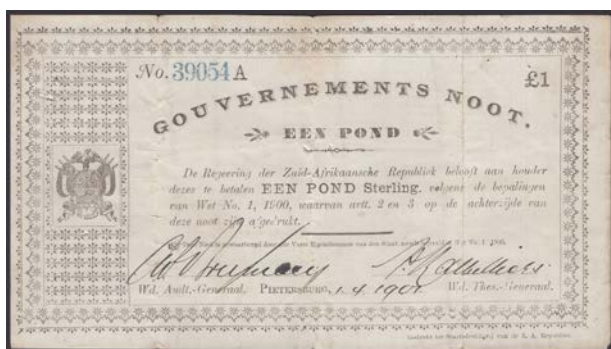 No. 39054 A
£1
GOUVERNEMENTS NOOT.
EEN POND
De Regeering der Zuid-Afrikaansche Republiek belooft aan houder
dezes te betalen EEN POND Sterling, volgens de bepalingen
van Wet No. 1, 1900, waarvan artt. 2 en 3 op de achterzijde van
deze noot zijn afgedrukt.
Wd. Audt.-Generaal. PIETERSBURG, 1.4.1901. Wd. Thes.-Generaal.